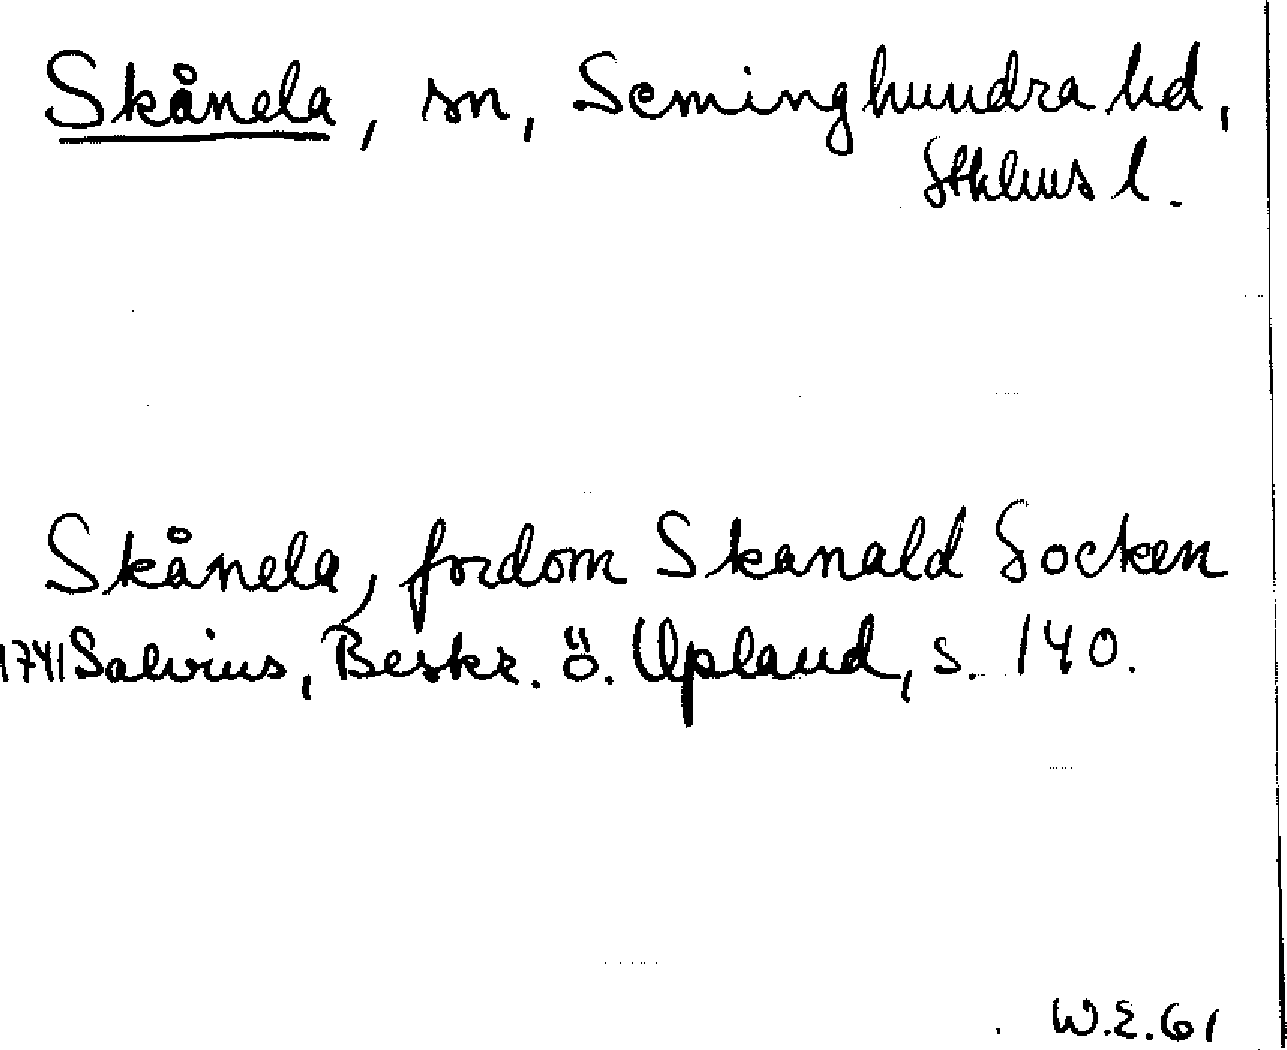 Skånela, sn, Seminghundra hd,
Sthlms l.
Skånela, fordom Skanald Socken
1741 Salvius, Beskr. ö. Upland, s. 140.
W.E.61